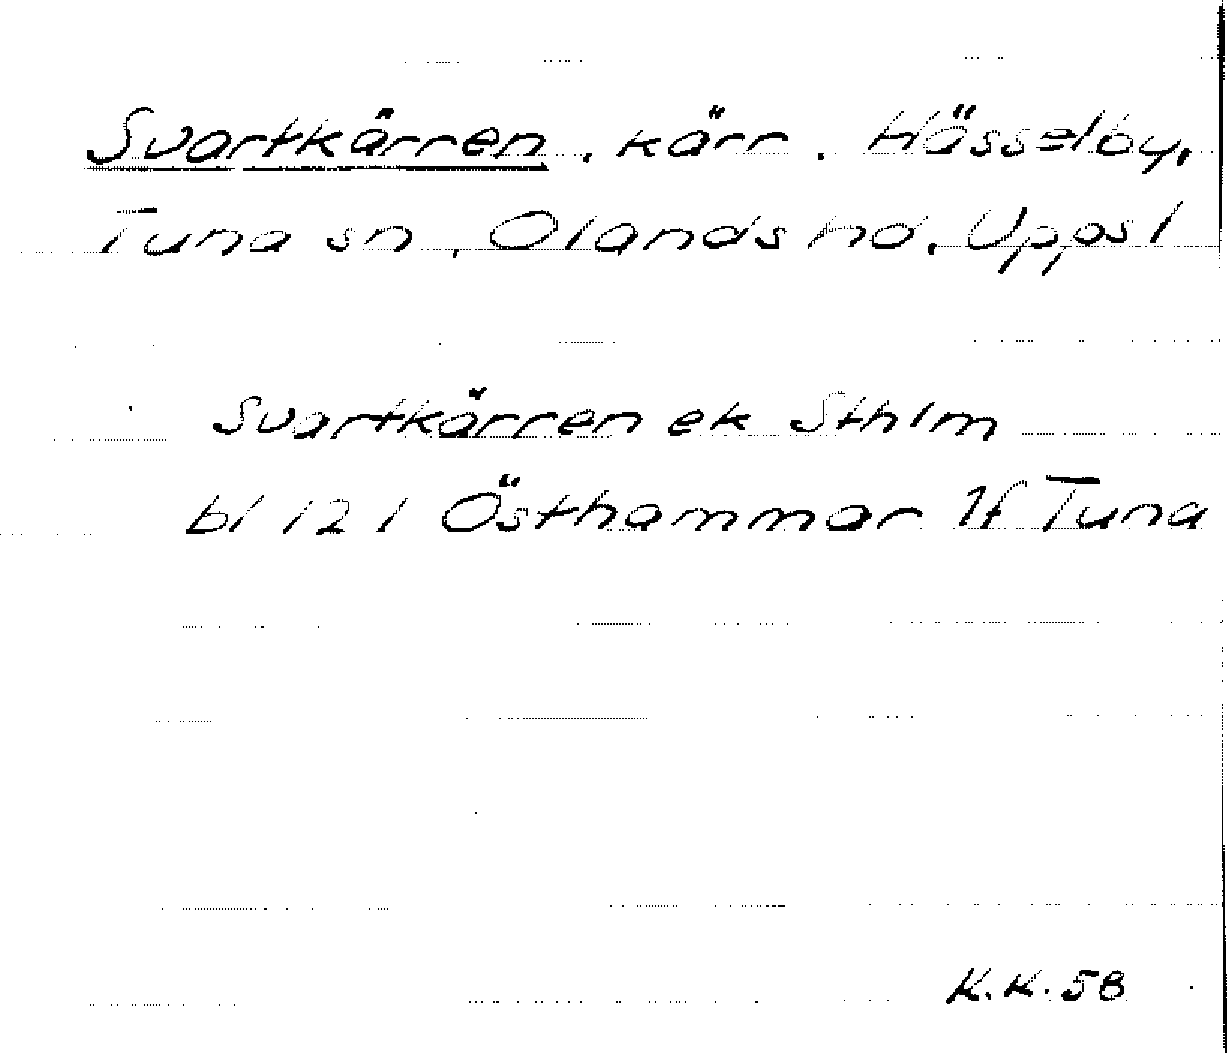 Svartkärren, kärr. Hässelby,
Tuna sn, Olands hd, Uppsl
Svartkärren ek Sthlm
bl 121 Östhammar 1f Tuna
K.K.58